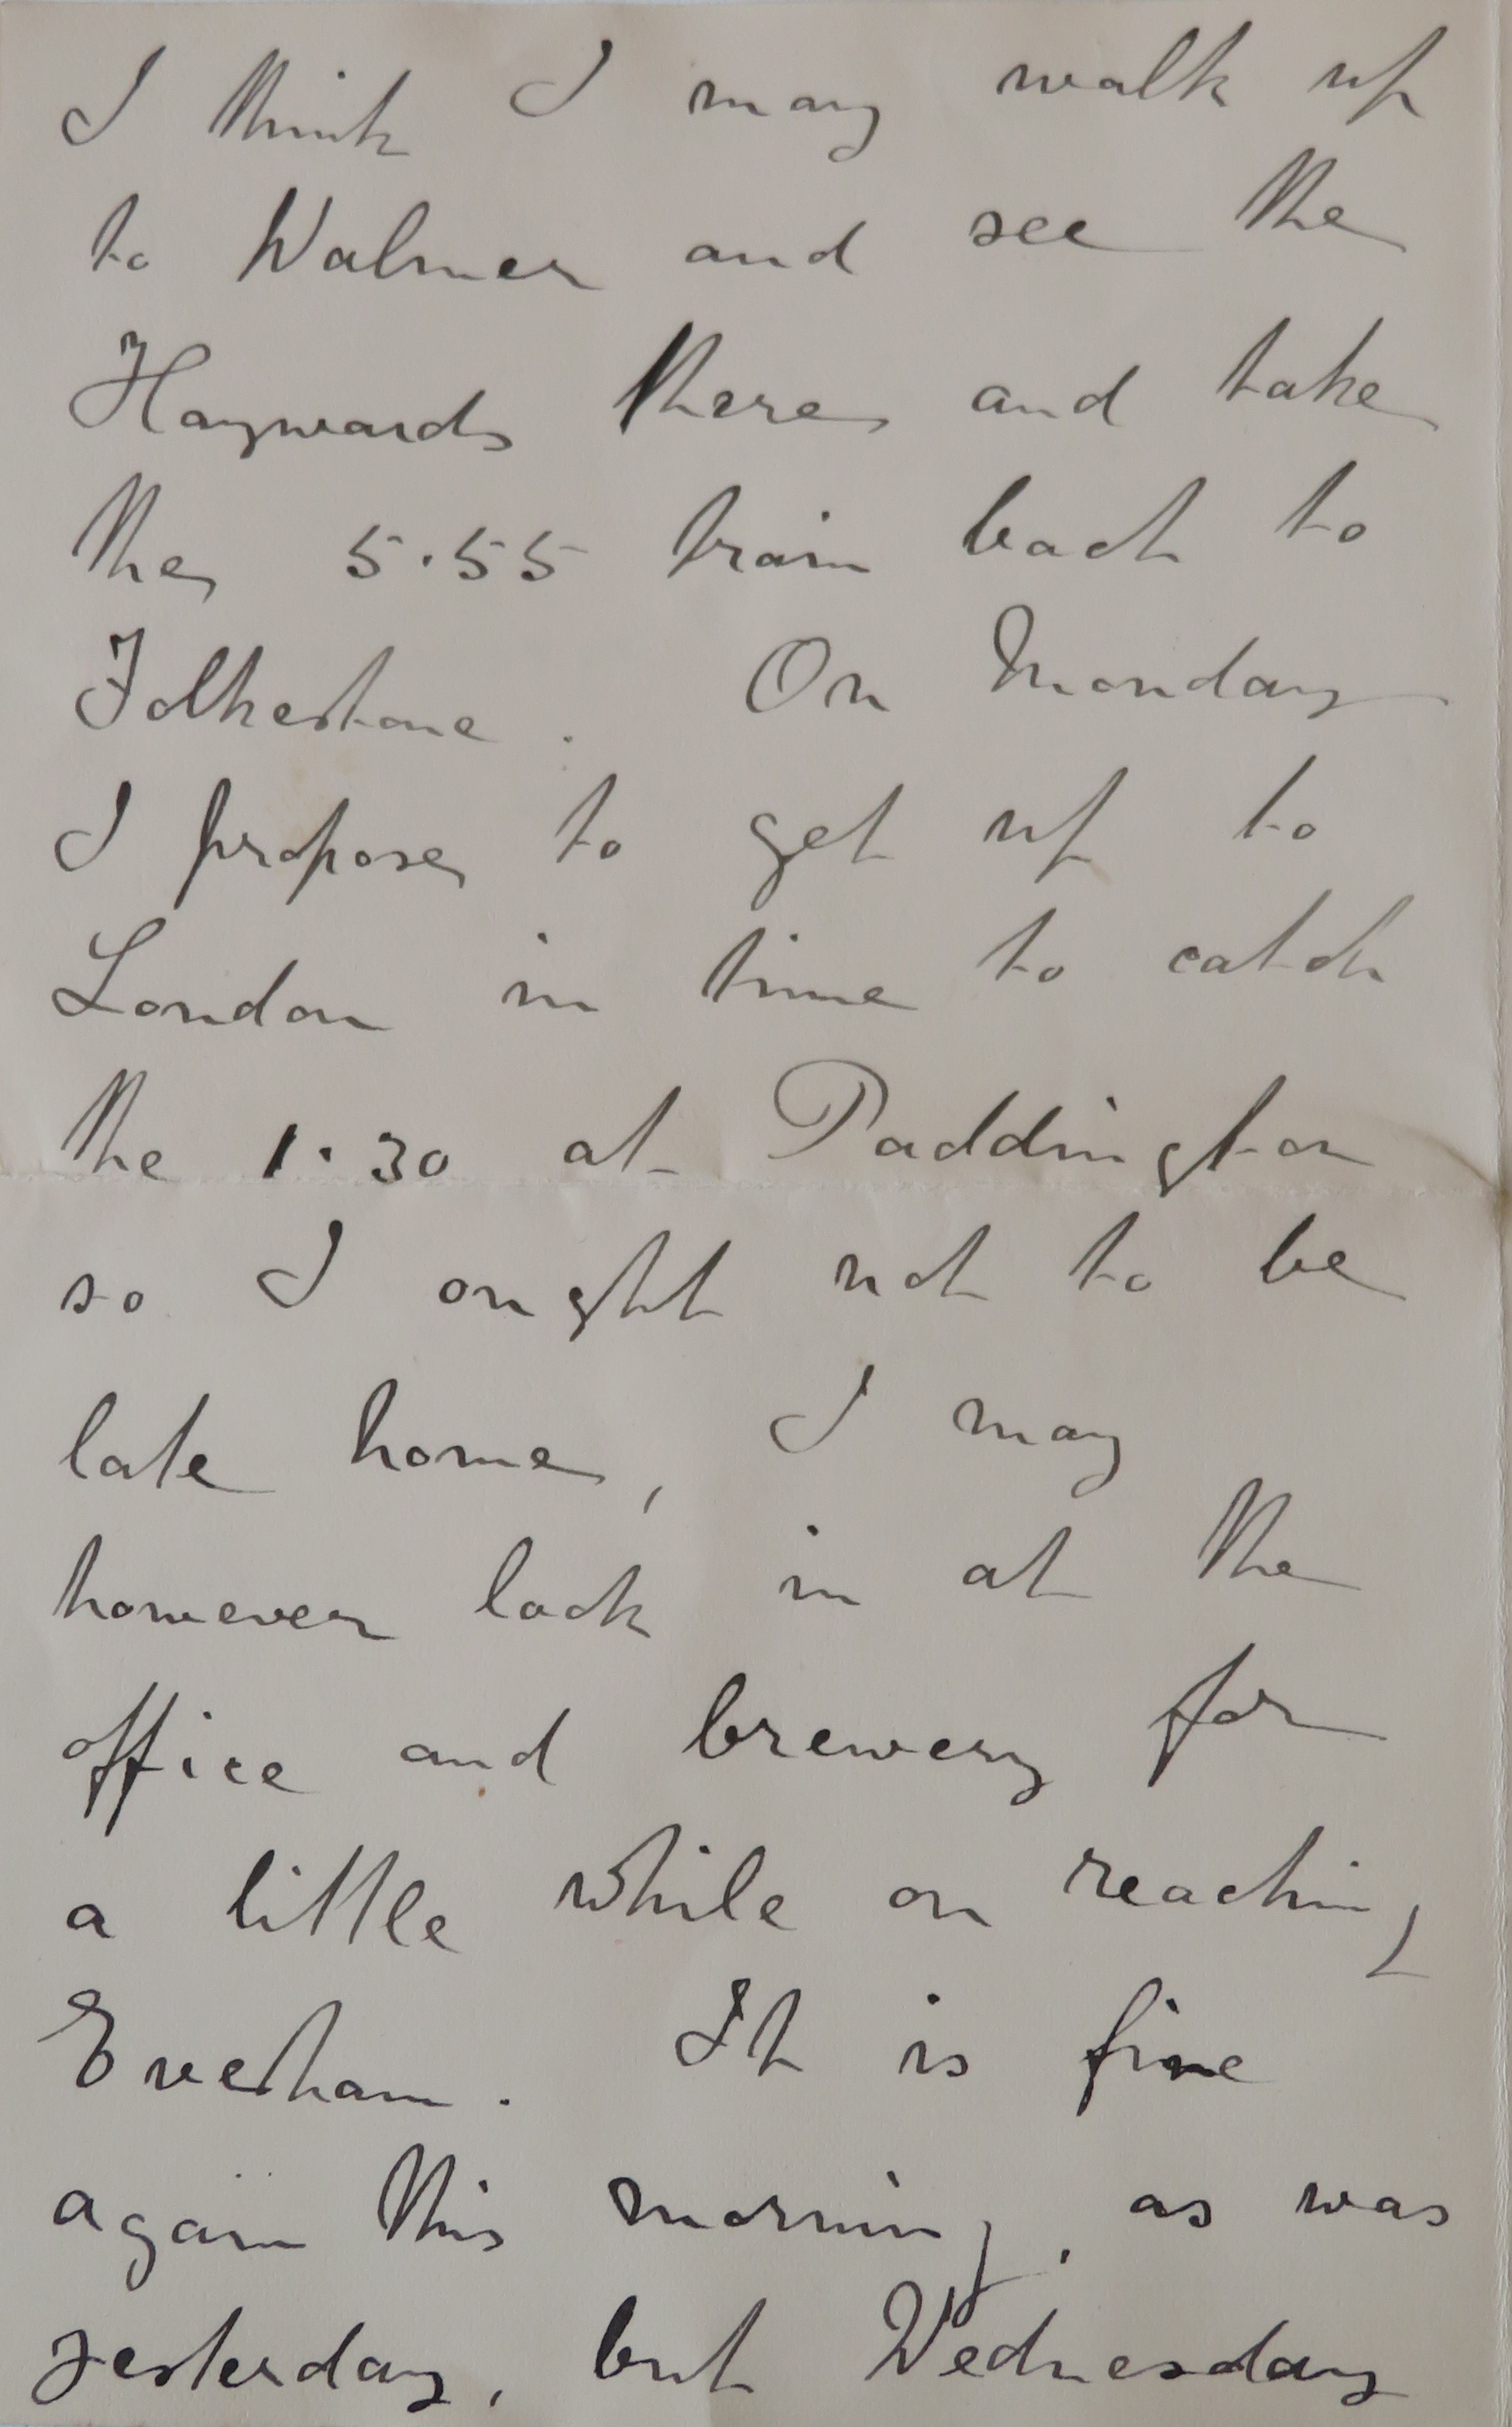 I think I may walk up
to Walmer and see the
Haywards there and take
the 5.55 train back to
Folkestone. On Monday
I propose to get up to
London in time to catch
the 1.30 at Paddington
so I ought not to be
late home, I may
however look in at the
office and brewery for
a little while on reaching
Evesham. It is fine
again this morning, as was
yesterday, but Wednesday